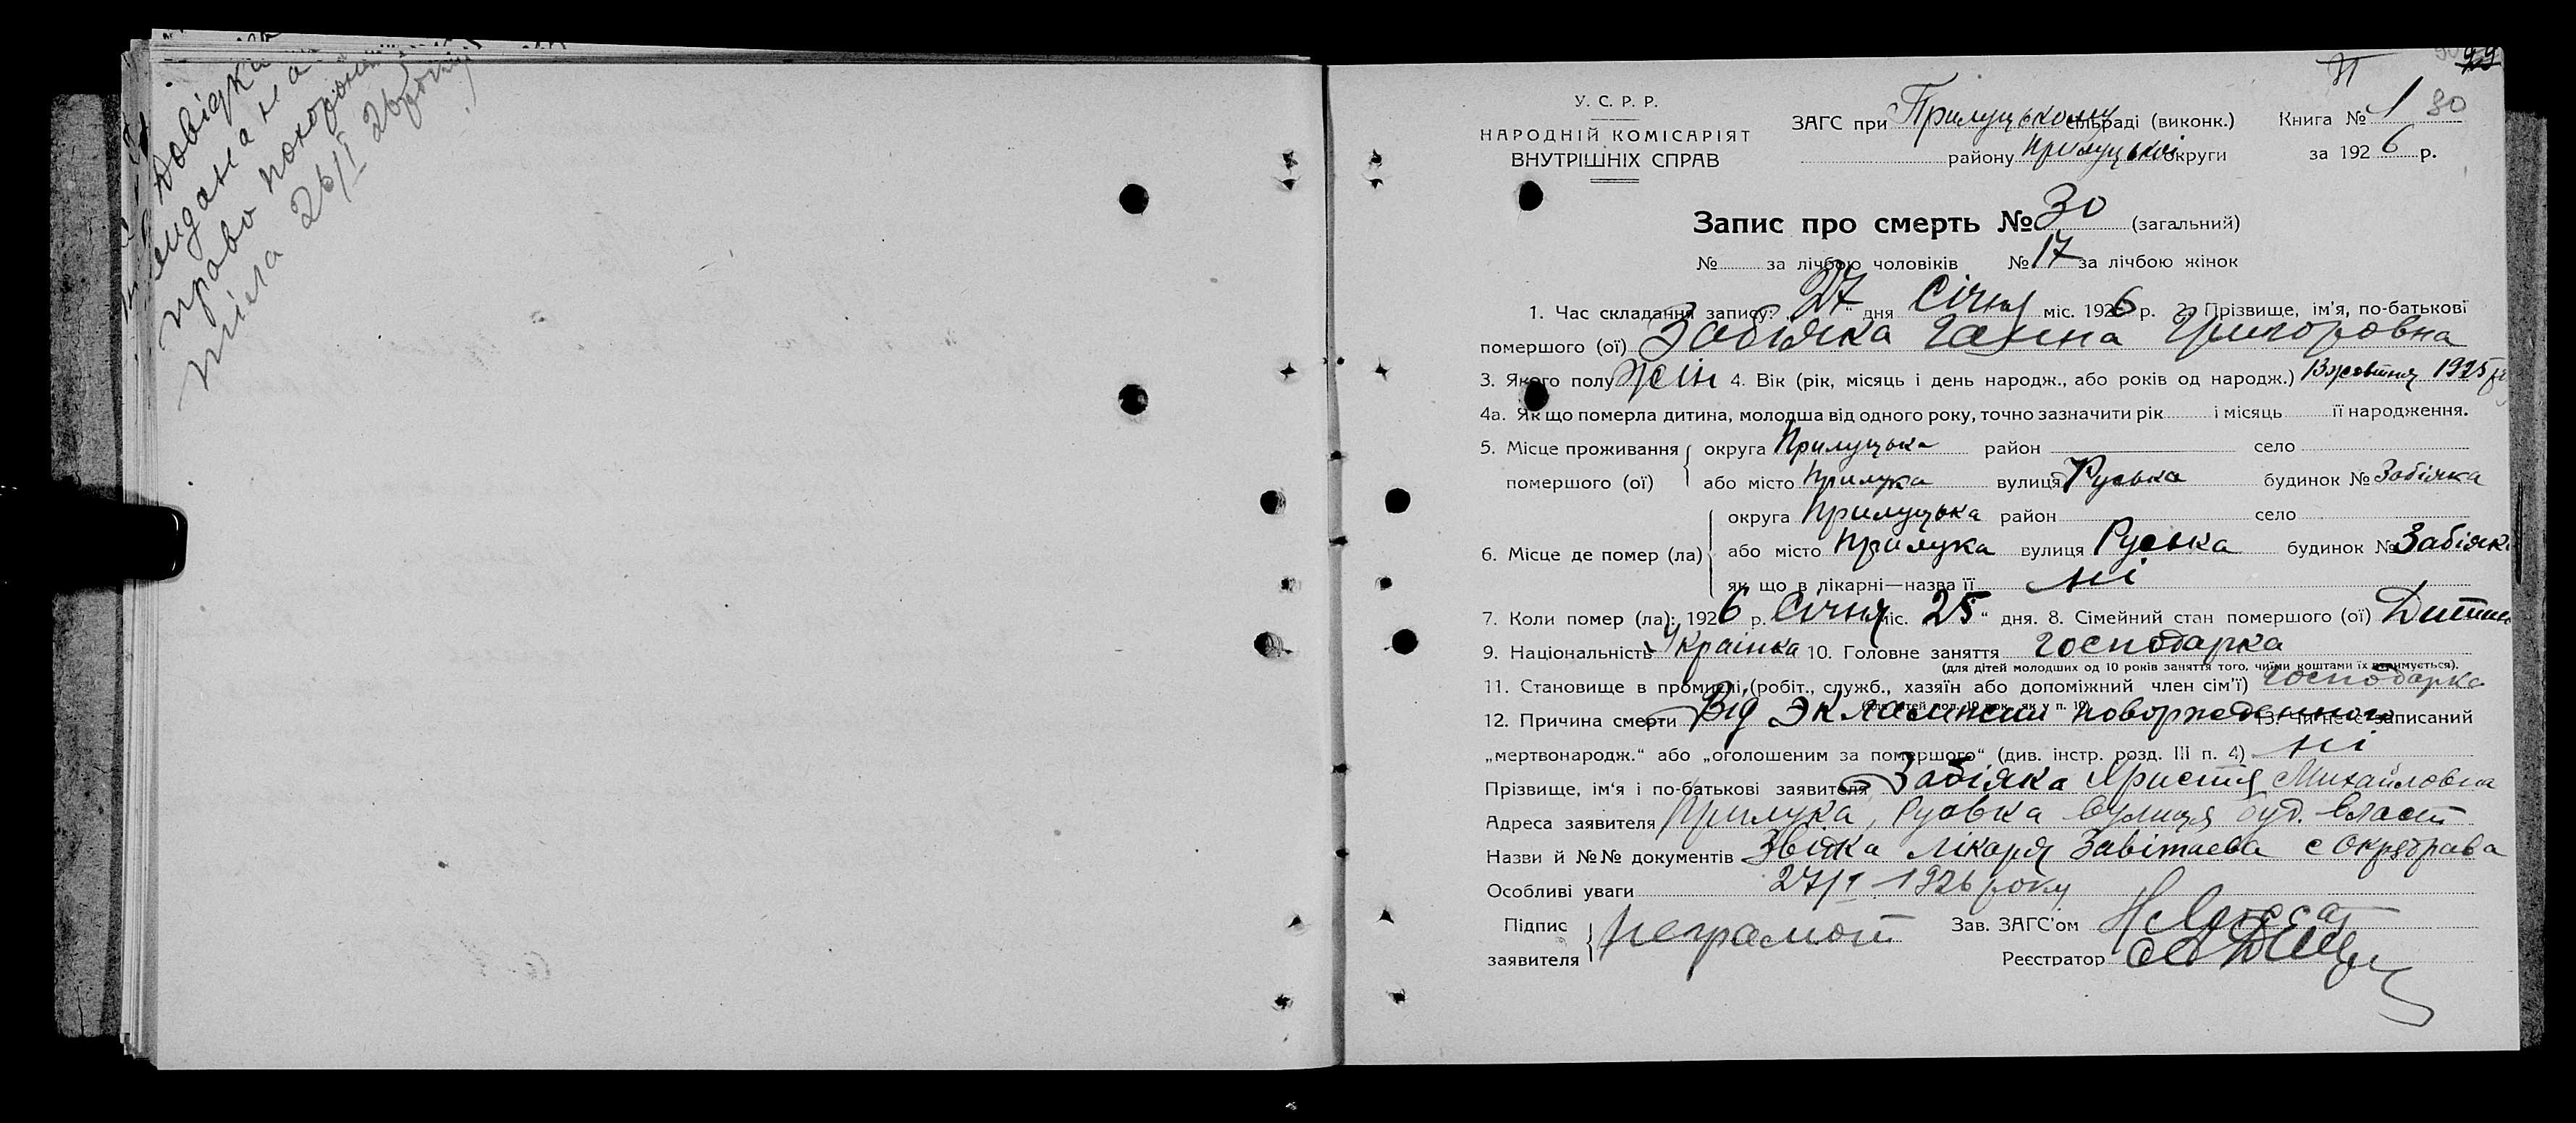 Довідка
видана на
право похорон
тіла 26/I 26 року
99
80
У. С. Р. Р.
НАРОДНІЙ КОМІСАРІЯТ
ВНУТРІШНІХ СПРАВ
ЗАГС при Прилуцькому сільраді (виконк.) Книга № 1
району Прилуцької округи за 1926 р.
Запис про смерть № 30 (загальний)
№ за лічбою чоловіків № 17 за лічбою жінок
1. Час складання запису: „27“ дня Січня міс. 1926 р. 2. Прізвище, ім'я, по-батькові
помершого (ої) Забіяка Ганна Григоровна
3. Якого полу Жін 4. Вік (рік, місяць і день народж., або років од народж.) В жовтня 1925 р
4а. Як що померла дитина, молодша від одного року, точно зазначити рік і місяць її народження.
5. Місце проживання помершого (ої) округа Прилуцька район село
або місто Прилука вулиця Руська будинок № Забіяка
6. Місце де помер (ла) округа Прилуцька район село
або місто Прилука вулиця Руська будинок № Забіяки
як що в лікарні—назва її ні
7. Коли помер (ла): 1926 р. Січня міс. 25“ дня. 8. Сімейний стан помершого (ої) Дитина
9. Національність Українка 10. Головне заняття господарка
(для дітей молодших од 10 років заняття того, чиїми коштами їх утримується).
11. Становище в промислі, (робіт., служб., хазяїн або допоміжний член сім'ї) господарка
(для дітей мол. 10 рок. як у п. 10)
12. Причина смерти Від Эклампсии новорожденного 13. Чи не є записаний
„мертвонародж.“ або „оголошеним за помершого“ (див. інстр. розд. III п. 4) ні
Прізвище, ім'я і по-батькові заявителя Забіяка Христя Михайловна
Адреса заявителя Прилука, Руська вулиця буд. власт
Назви й №№ документів Звістка лікаря с
Особливі уваги 27/I 1926 року
Підпис заявителя неграмот Зав. ЗАГС'ом
Реєстратор